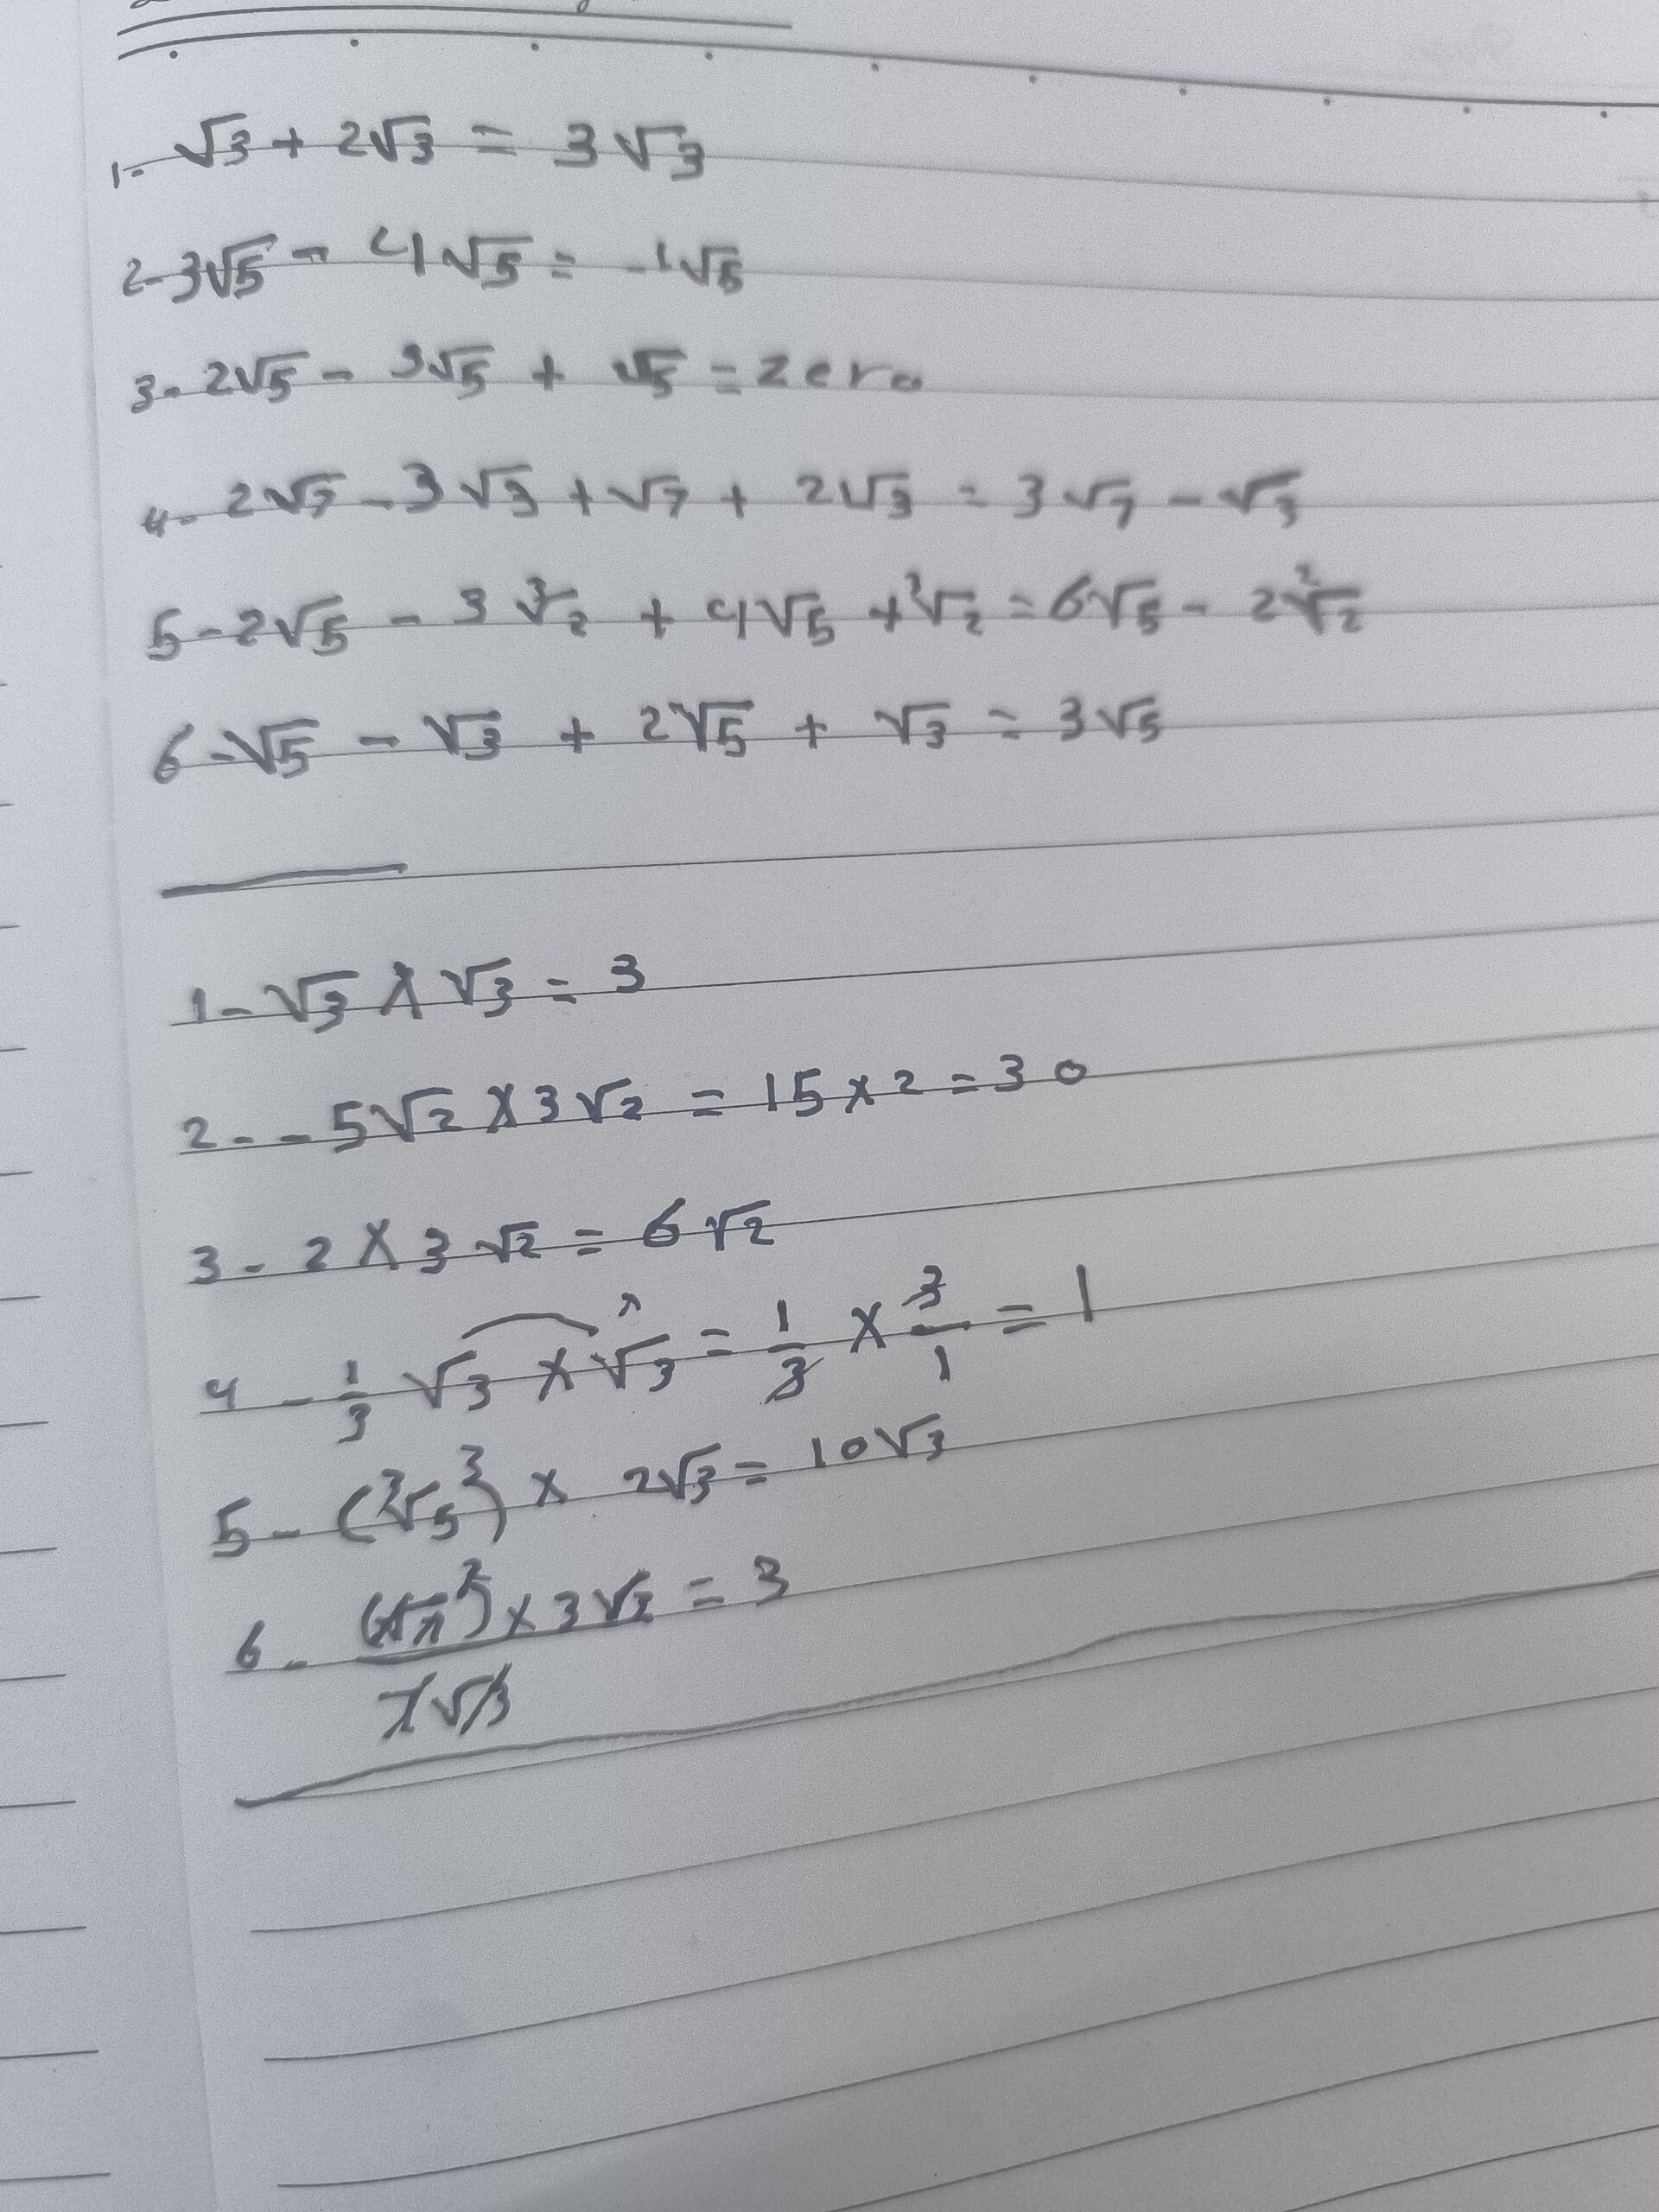 1- √3 + 2√3 = 3√3
2- 3√5 - 4√5 = -1√5
3- 2√5 - 3√5 + √5 = zero
4- 2√7 - 3√3 + √7 + 2√3 = 3√7 - √3
5- 2√5 - 3 ³√2 + 4√5 + ³√2 = 6√5 - 2 ³√2
6- √5 - √3 + 2√5 + √3 = 3√5
1- √3 X √3 = 3
2- - 5√2 X 3√2 = 15 x 2 = 30
3- 2 X 3√2 = 6√2
4 - 1/3 √3 X √3 = 1/3 X 3/1 = 1
5 - (³√5)³ x 2√3 = 10√3
x 3√3 = 3